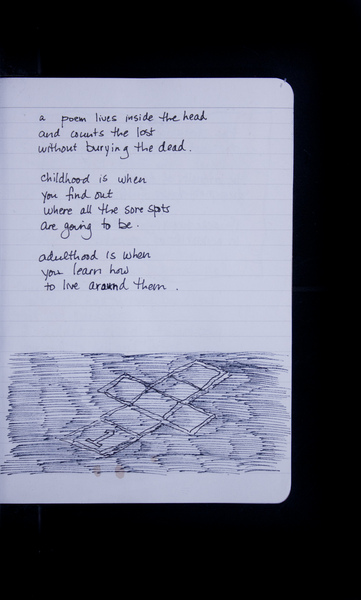 a poem lives inside the head
and counts the lost
without burying the dead.
childhood is when
you find out
where all the sore spots
are going to be.
adulthood is when
you learn how
to live around them.
1